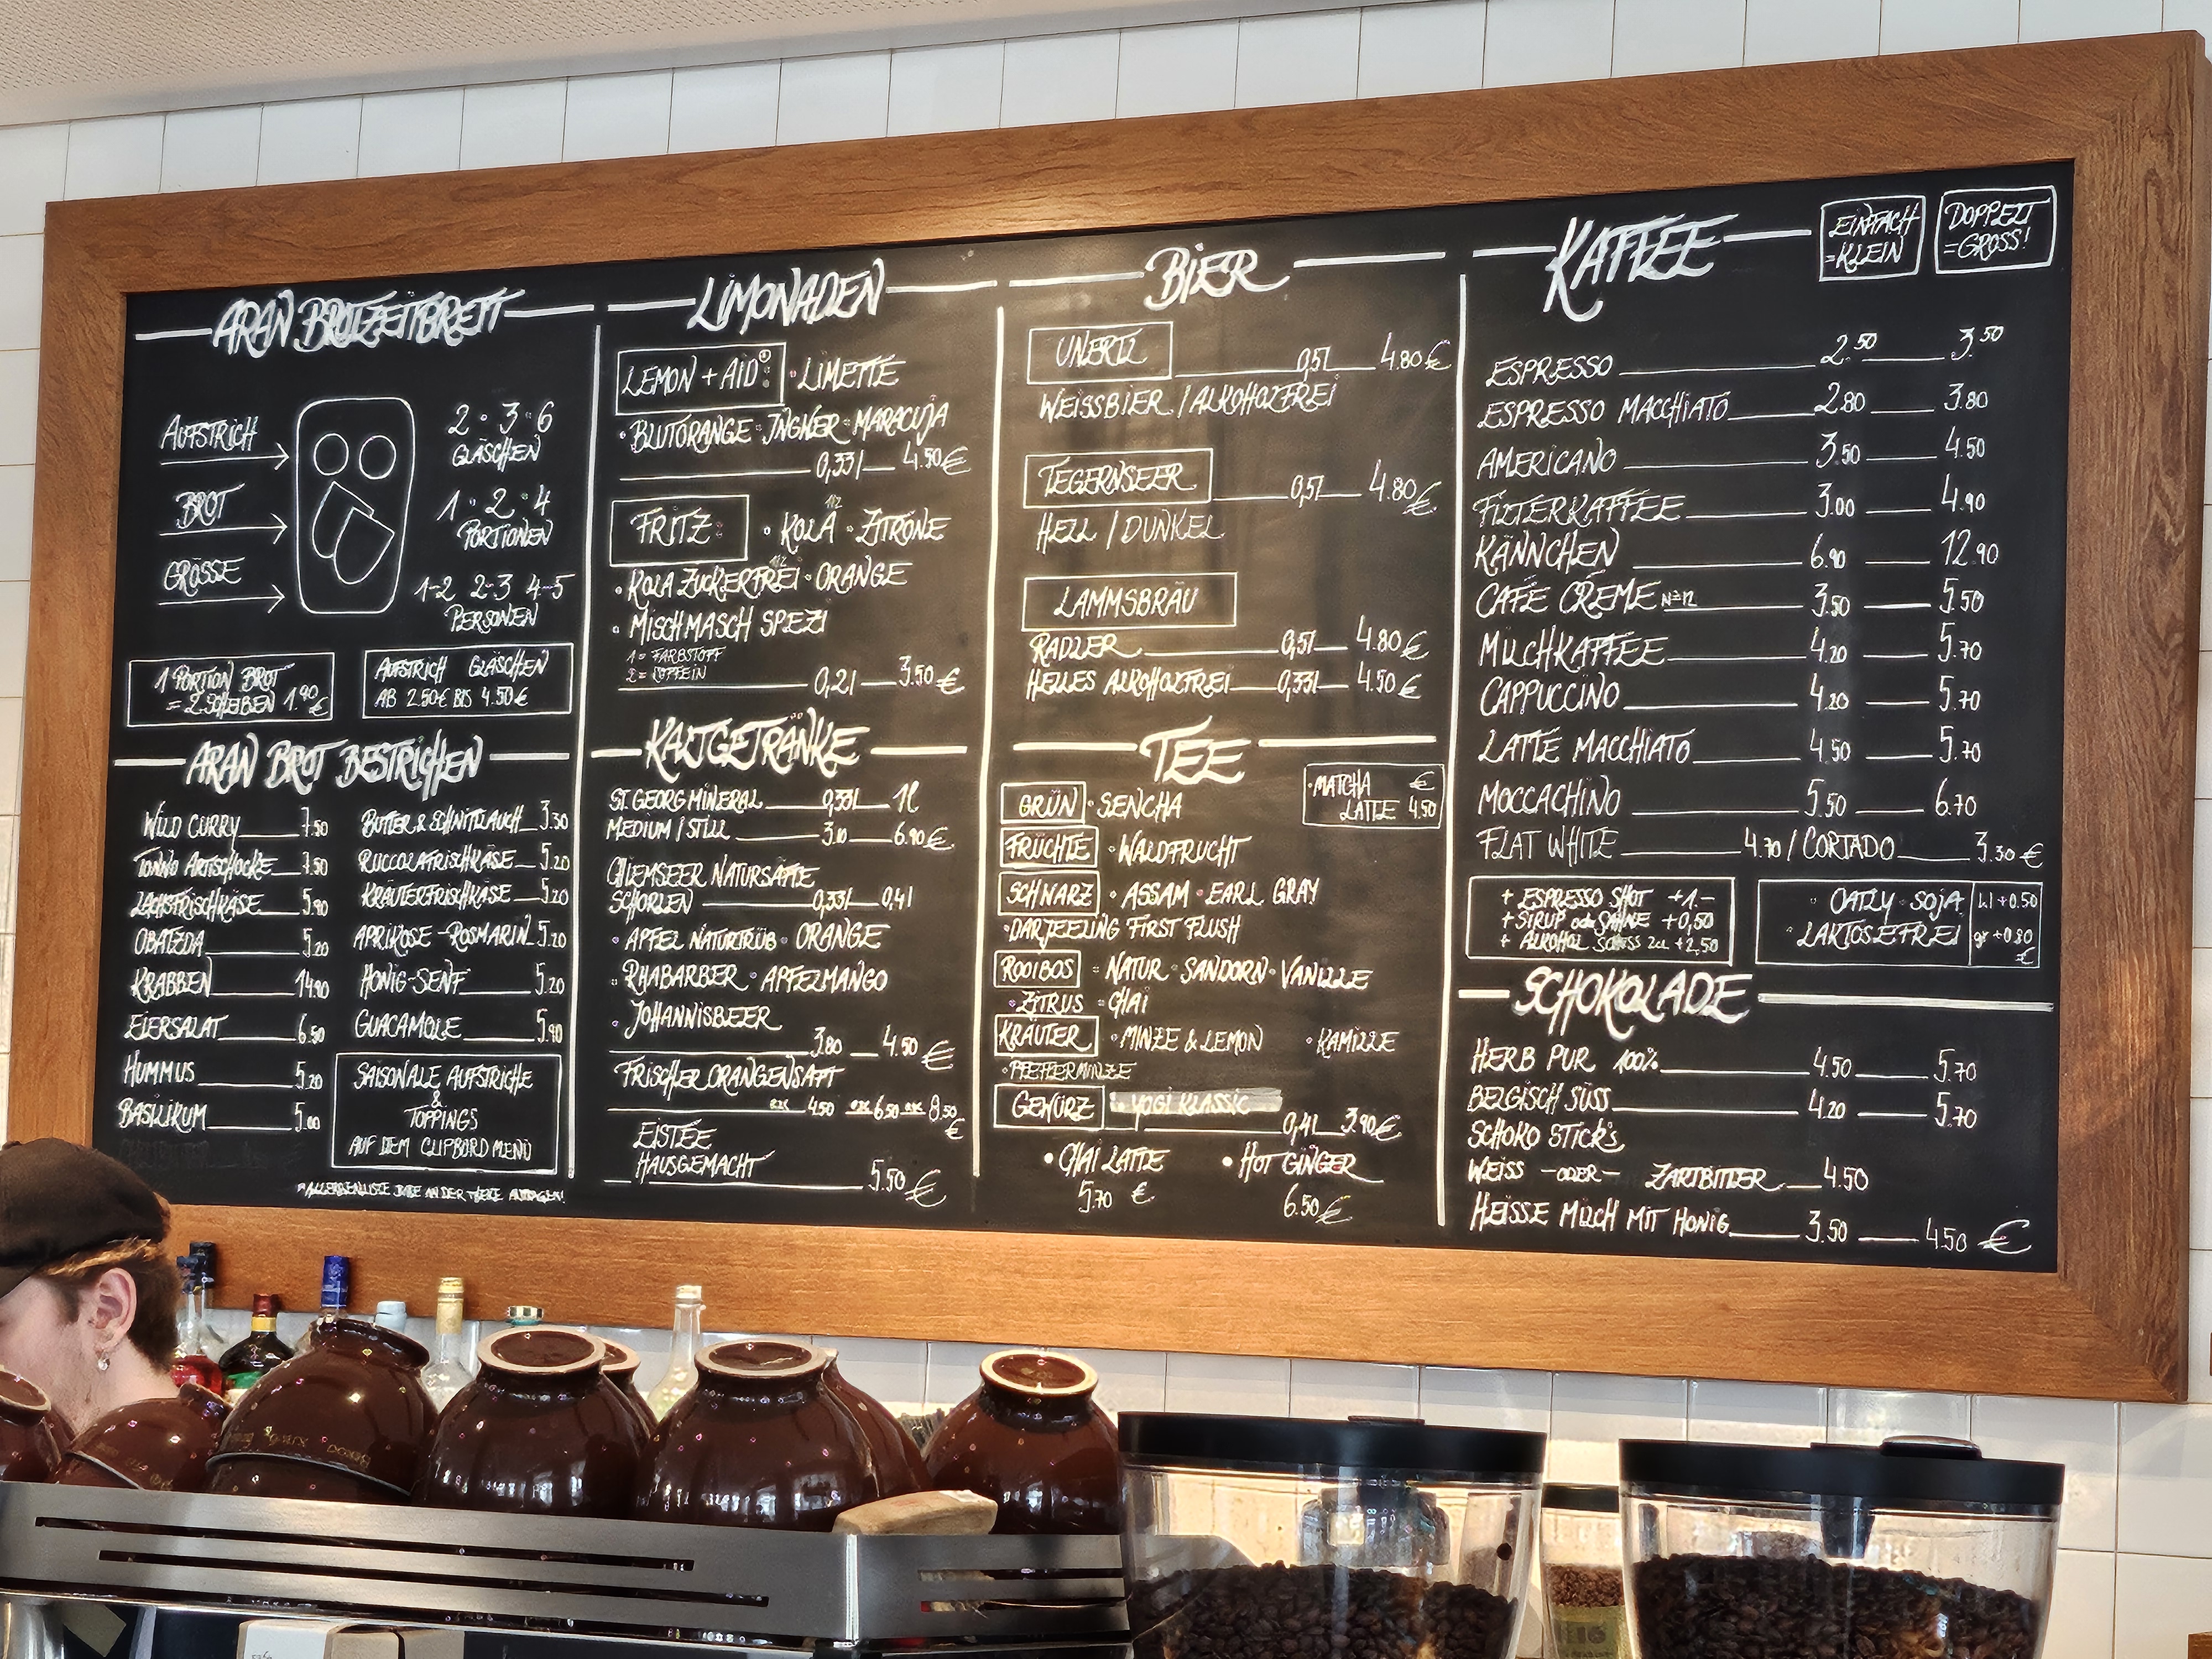 ARAN BROTZEITBRETT
AUFSTRICH
2 · 3 · 6
GLÄSCHEN
BROT
1 · 2 · 4
PORTIONEN
GRÖSSE
1-2 2-3 4-5
PERSONEN
1 PORTION BROT
= 2 SCHEIBEN 1.90 €
AUFSTRICH GLÄSCHEN
AB 2.50€ BIS 4.50€
ARAN BROT BESTRICHEN
WILD CURRY 7.50
TONNO ARTISCHOCKE 7.50
LACHSFRISCHKÄSE 5.90
OBATZDA 5.20
KRABBEN 14.90
EIERSALAT 6.50
HUMMUS 5.20
BASILIKUM 5.00
BUTTER & SCHNITTLAUCH 3.30
RUCCOLAFRISCHKÄSE 5.20
KRÄUTERFRISCHKÄSE 5.20
APRIKOSE-ROSMARIN 5.20
HONIG-SENF 5.20
GUACAMOLE 5.90
SAISONALE AUFSTRICHE
&
TOPPINGS
AUF DEM CLIPBORD MENÜ
*ALLERGENLISTE BITTE AN DER THEKE ANFRAGEN!
LIMONADEN
LEMON + AID · LIMETTE
· BLUTORANGE · INGWER · MARACUJA
0,33l 4.50€
FRITZ: · KOLA 1/2 · ZITRONE
· KOLA ZUCKERFREI 1/2 · ORANGE
· MISCHMASCH SPEZI
1 = FARBSTOFF
2 = COFFEIN
0,2l 3.50 €
KALTGETRÄNKE
ST. GEORG MINERAL 0,33l 1l
MEDIUM / STILL 3.10 6.90€
CHIEMSEER NATURSÄFTE
SCHORLEN 0,33l 0,4l
· APFEL NATURTRÜB · ORANGE
· RHABARBER · APFELMANGO
· JOHANNISBEER
3.80 4.50 €
FRISCHER ORANGENSAFT
4.50 6.50 8.50 €
EISTEE
HAUSGEMACHT
5.50 €
BIER
UNERTL 0,5l 4.80 €
WEISSBIER / ALKOHOLFREI
TEGERNSEER 0,5l 4.80 €
HELL / DUNKEL
LAMMSBRÄU
RADLER 0,5l 4.80 €
HELLES ALKOHOLFREI 0,33l 4.50 €
TEE
· MATCHA €
LATTE 4.50
GRÜN · SENCHA
FRÜCHTE · WALDFRUCHT
SCHWARZ · ASSAM · EARL GRAY
· DARJEELING FIRST FLUSH
ROOIBOS · NATUR · SANDORN · VANILLE
· ZITRUS · CHAI
KRÄUTER · MINZE & LEMON · KAMILLE
· PFEFFERMINZE
GEWÜRZ · YOGI KLASSIC
0,4l 3.90€
• CHAI LATTE • HOT GINGER
5.70 € 6.50 €
KAFFEE
EINFACH
= KLEIN
DOPPELT
= GROSS!
ESPRESSO 2.50 3.50
ESPRESSO MACCHIATO 2.80 3.80
AMERICANO 3.50 4.50
FILTERKAFFEE 3.00 4.90
KÄNNCHEN 6.90 12.90
CAFÉ CRÈME 3.50 5.50
MILCHKAFFEE 4.20 5.70
CAPPUCCINO 4.20 5.70
LATTE MACCHIATO 4.50 5.70
MOCCACHINO 5.50 6.70
FLAT WHITE 4.70 / CORTADO 3.30 €
+ ESPRESSO SHOT +1.-
+ SIRUP oder SAHNE +0,50
+ ALKOHOL SCHUSS 2cl +2,50
· OATLY · SOJA kl +0.50
· LAKTOSEFREI gr +0.80 €
SCHOKOLADE
HERB PUR 100% 4.50 5.70
BELGISCH SÜSS 4.20 5.70
SCHOKO STICK'S
WEISS -ODER- ZARTBITTER 4.50
HEISSE MILCH MIT HONIG 3.50 4.50 €